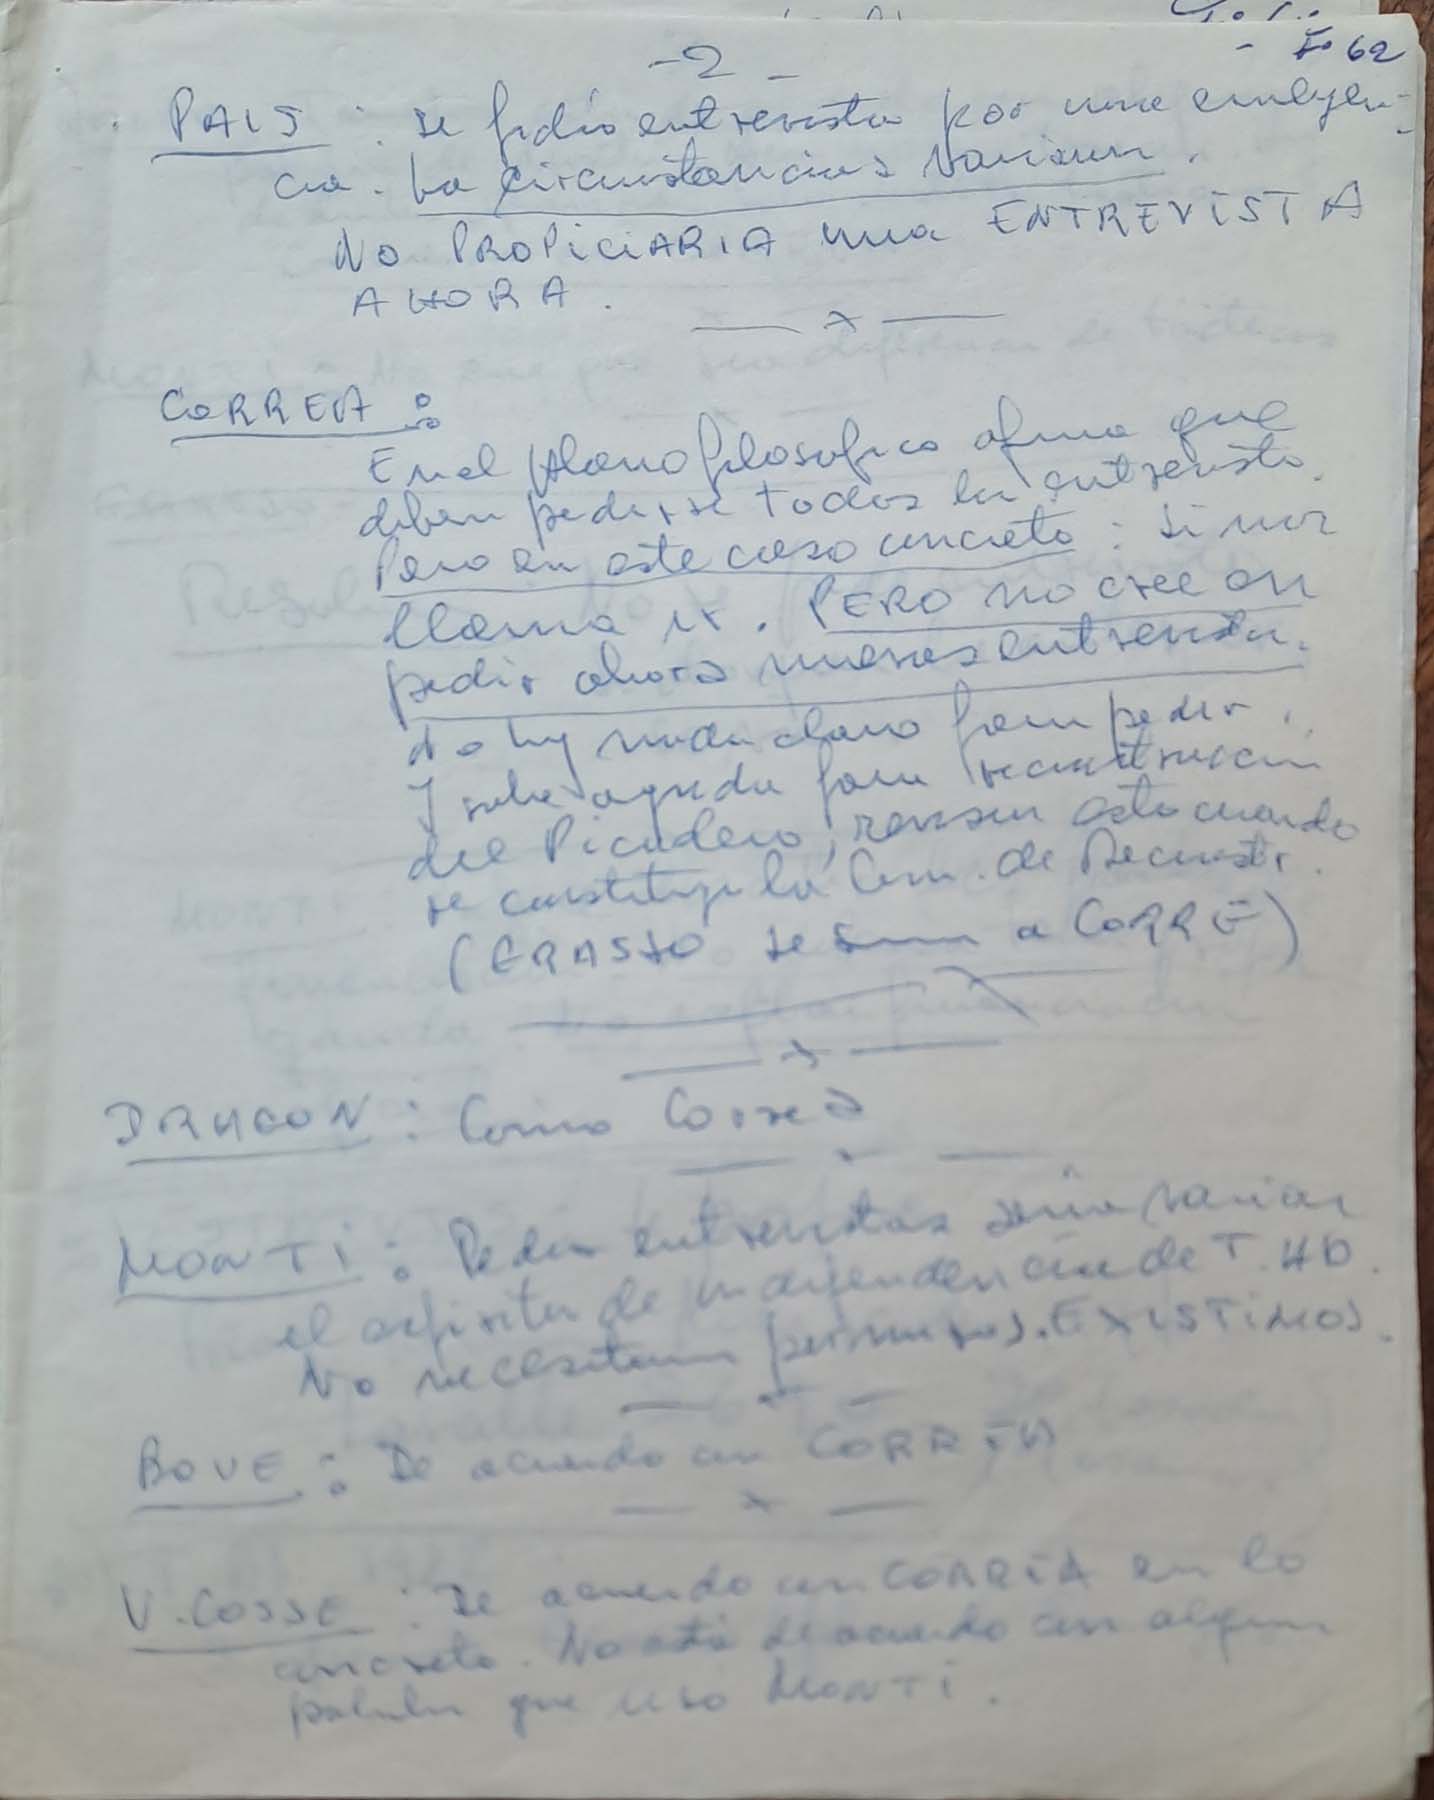 -2-
Fo 62
PAIS : se pidió entrevista por una emergen-
cia. La circunstancias variaron.
NO PROPICIARIA una ENTREVISTA
AHORA.
CORREA :
En el plano filosofico afirma que
deben pedirse todas las entrevistas.
Pero en este caso concreto : si nos
llama ir. PERO no cree en
pedir ahora nuevas entrevistas.
No hay nada claro para pedir.
Y sobre ayuda para reconstruccion
del Picadero, revisar esto cuando
se constituya la Com. de Reconstr.
(ERASSO se suma a CORREA)
DRAGON : Como Correa
MONTI : Pedir entrevistas seria variar
el espiritu de independencia de T. AB.
No necesitamos permisos. EXISTIMOS.
BOVE : De acuerdo con CORREA
V. COSSE : De acuerdo con CORREA en lo
concreto. No está de acuerdo con alguna
palabra que uso MONTI.